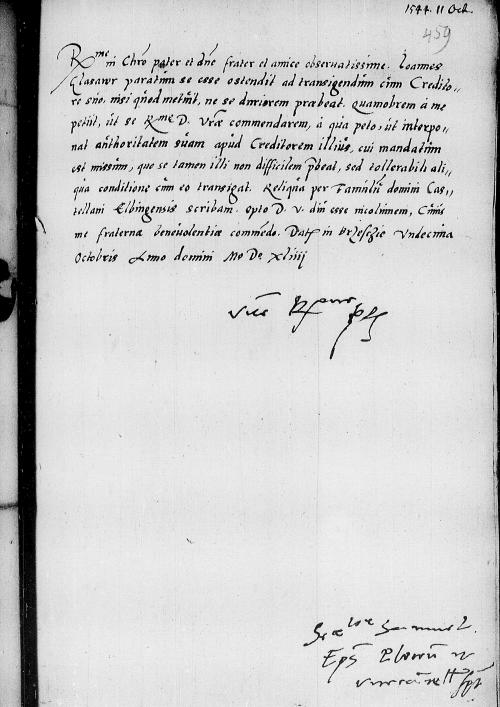 1544. 11 Oct.
459
R.me in Chro pater et dne frater et amice observatissime. Ioannes
Glasawr paratum se esse ostendit ad transigendum cum Credito„
re suo, nisi quod metuit, ne se duriorem praebeat. Quamobrem à me
petiit, ut se R.me D. Vrae commendarem, à qua peto, ut interpo„
nat authoritatem suam apud Creditorem illius, cui mandatum
est missum, quo se tamen illi non difficilem pbeat, sed tollerabili ali„
qua conditione cum eo transigat. Reliqua per Famulu domini Cas„
tellani Elbingensis scribam. Opto D. V. diu esse incolumem, Cuius
me fraternae benevolentiae commedo. Dat in Brzesczie Undecima
Octobris Anno domini Mo Do xliiij
Samuel
Eps Plocen